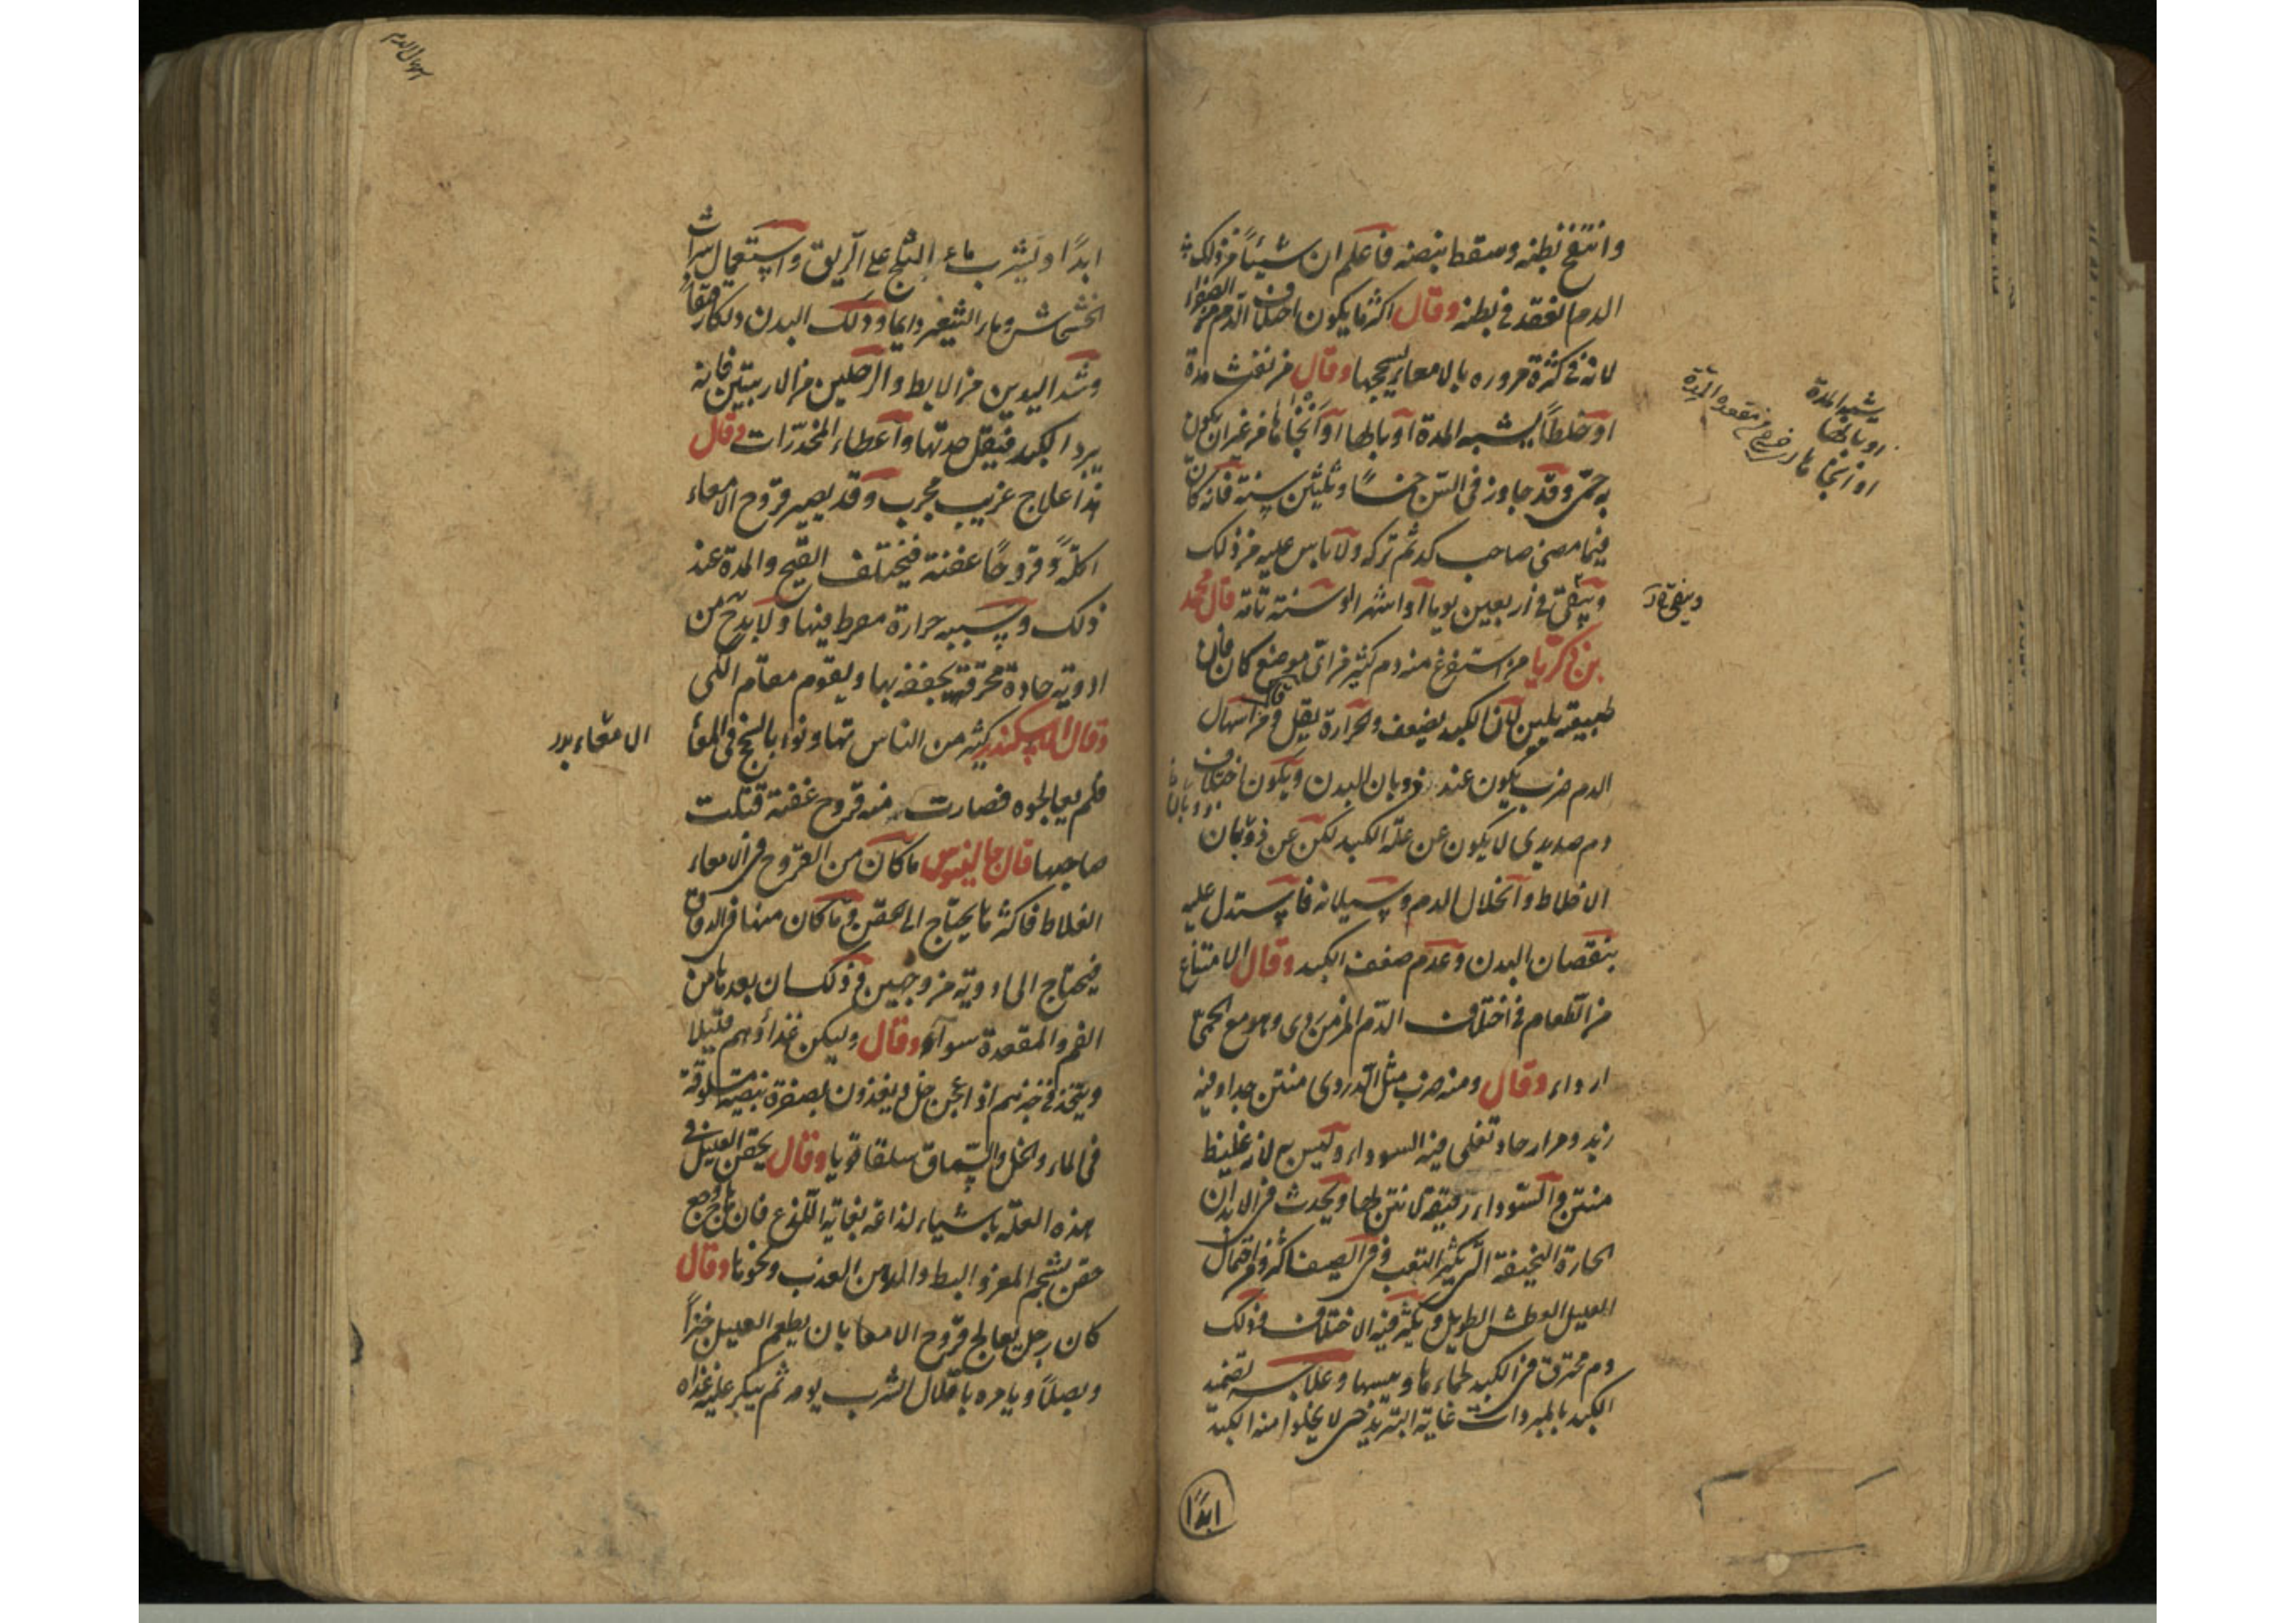 وانتفخ بطنه وسقط نبضه فاعلم ان شيئاً من ذلك
الدم انعقد في بطنه وقال اكثر ما يكون اختلاف الدم من الصفراء
لانه في كثرة مروره بالامعاء يسحجها وقال من نفث مدة
او خلطاً يشبه المدة او بالها او انجا بها من غير ان يكون
به حمى وقد جاوز في السن خمسًا وثلثين سنة فانه كان
فيما مضى صاحب كد ثم تركه ولا باس عليه من ذلك
وينقى في اربعين يوما او اشهر او سنة تامة قال محمد
بن زكريا من استفرغ منه دم كثير من اي موضع كان فان
طبيعته يلين لان الكبد يضعف والحرارة يقل وقال من اسهال
الدم ضرب يكون عند ذوبان البدن ويكون اختلاف
دم صديدي لا يكون عن علة الكبد لكن عن ذوبان
الاخلاط وانحلال الدم وسيلانه فاستدل عليه
بنقصان البدن وعدم ضعف الكبد وقال الامتناع
من الطعام في اختلاف الدم المزمن ردي وهو مع الحمى
ارداء وقال ومنه ضرب مثل الدردي منتن جدا وفيه
زبد ومرار حاد تغلي فيه السوداء وليس به لانه غليظ
منتن والسوداء رقيقة لا نتن لها ويحدث في الابدان
الحارة النحيفة التي يكثر التعب وفي الصيف اكثر واحتمال
العليل العطش الطويل ويكثر فيه الاختلاف وذلك
دم محترق في الكبد لحماءها ويبسها وعلاجه تضميد
الكبد بالمبردات غاية التبريد حتى لا يخلوا منه الكبد
ابدًا
يشبه المدة
او بالها
او انجا بها
خرج من مقعدة المدة
ابدًا ويشرب ماء الثلج على الريق واستعمال شراب
الخشخاش وماء الشعير دايما ودلك البدن دلكا رقيقاً
وشد اليدين من الابط والرجلين من الاربيتين فانه
يبرد الكبد فيقل حدتها واعطاء المخدرات وقال
هذا علاج غريب مجرب وقد يصير قروح الامعاء
اكلةً وقروحًا عفنة فيختلف القيح والمدة عند
ذلك وسببه حرارة مفرط فيها ولا بد ح من
ادوية حادة محرقة يجففها بها ويقوم مقام الكي
وقال الاسكندر كثير من الناس تهاونوا بالسحج في المعا
فلم يعالجوه فصارت منه قروح عفنة قتلت
صاحبها قال جالينوس ما كان من القروح في الامعاء
الغلاظ فاكثر ما يحتاج الى الحقن وما كان منها في الدقاق
فيحتاج الى ادوية من وجهين وذلك ان بعدها من
الفم والمقعدة سواء وقال وليكن غذاؤهم قليلا
ويتخذ في خبزهم اذا عجن خل ويغذون بصفرة بيض مسلوقة
في الماء والخل والسماق سلقا قويا وقال يحقن العليل في
هذه العلة باشياء لذاعة بغاية اللذع فان هاج وجع
حقن بشحم المعز والبط والدهن العذب ونحوها وقال
كان رجل يعالج قروح الامعا بان يطعم العليل خبزاً
وبصلاً ويامره باقلال الشرب يومه ثم يبكر عليه غداه
الامعاء بدر